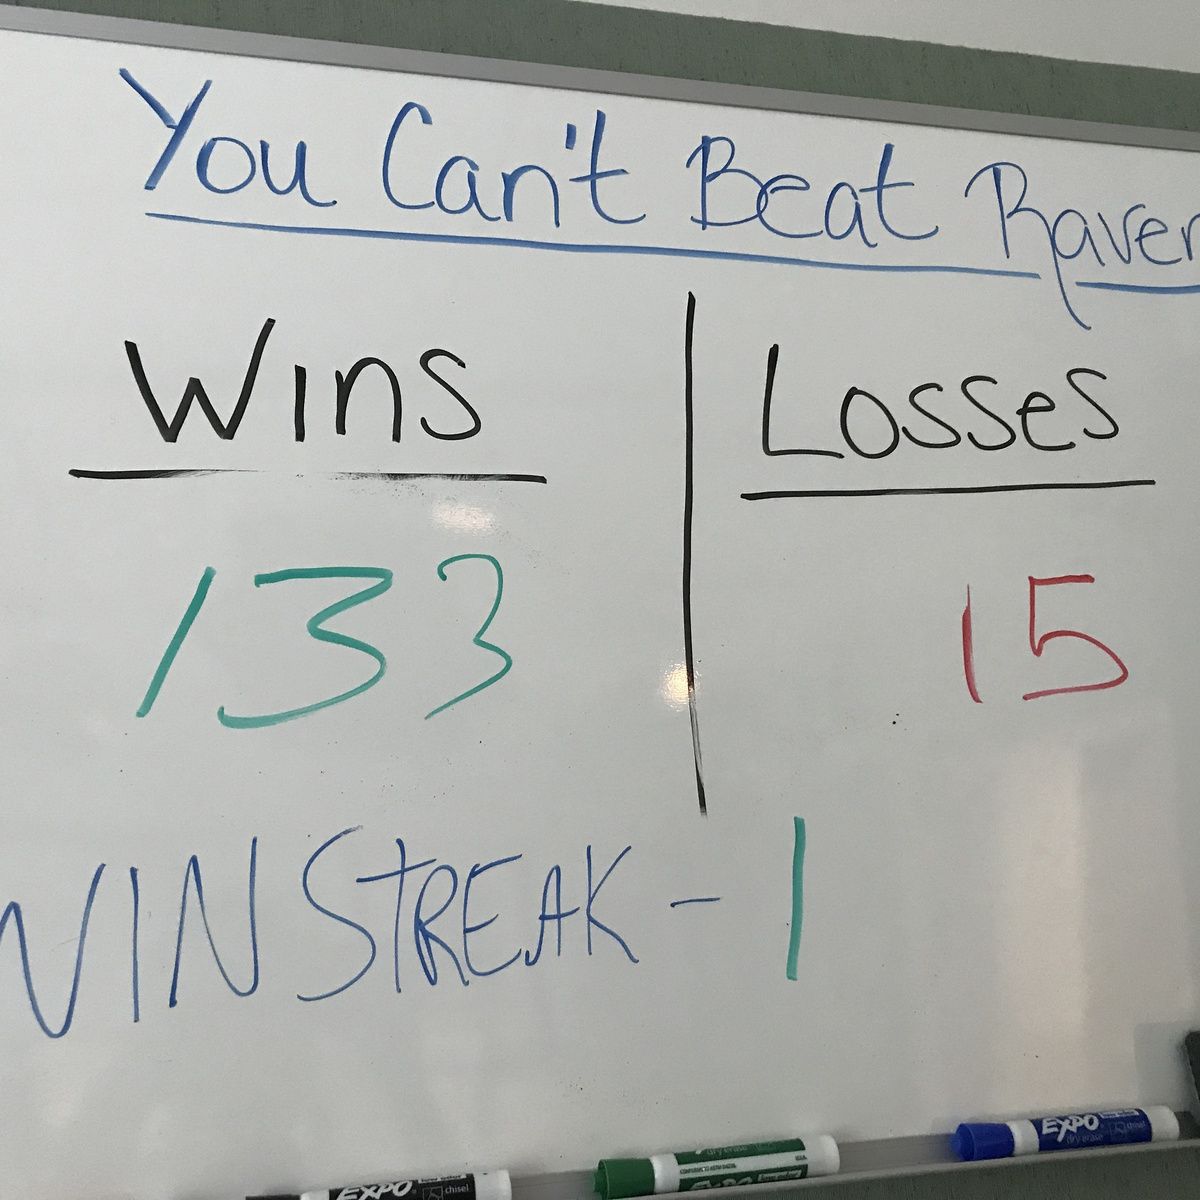 You Can't Beat Raven
Wins Losses
133 15
WIN STREAK - 1
EXPO chisel
dry erase
EXPO
EXPO
dry erase chisel